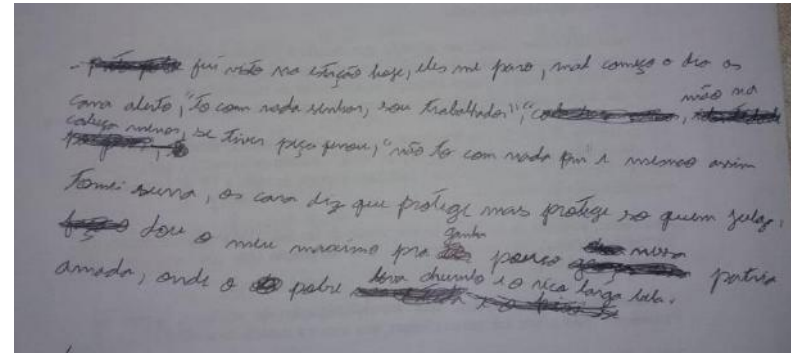 - fui visto na estação hoje, eles me paro, mal começo o dia os
cara alerto, "to com nada senhor, sou trabalhador", " mão na
cabeça menor, se tiver peça, "não to com nada fml e mesmo assim
Tomei surra, os cara diz que protege mais protege so quem julga,
dou o meu maximo pra ganha pouco nessa patria
amada, onde o pobre leva chumbo e o rico larga bala.